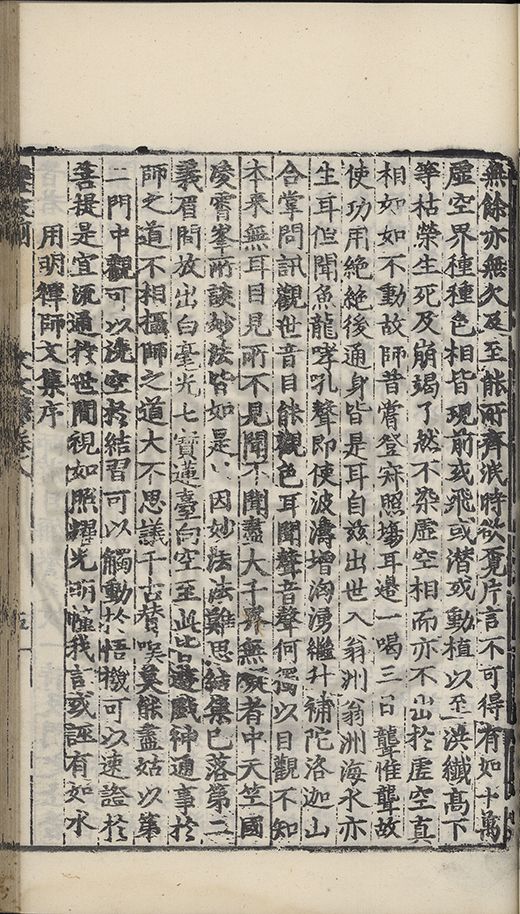 無餘亦無欠及至能所齊泯時欲覓片言不可得有如十萬
虛空界種種色相皆現前或飛或潛或動植以至洪纖髙下
等枯榮生死及崩竭了然不染虛空相而亦不出於虛空真
相如如不動故師昔嘗登寂照塲耳邊一喝三日聾惟聾故
使功用絶絶後通身皆是耳自兹出世入翁洲翁洲海水亦
生耳但聞魚龍哮吼聲即使波濤增洶湧繼升補陀洛迦山
合掌問訊觀世音目能觀色耳聞聲音聲何獨以目觀不知
本來無耳目見所不見聞不聞盡大千界無礙者中天竺國
凌霄峯所談妙法皆如是因妙法法難思結集已落第二
義眉間放出白毫光七寶蓮臺向空至此皆遊戲神通事於
師之道不相攝師之道大不思議千古賛嘆莫能盡姑以第
二門中觀可以洗空於結習可以觸動於悟機可以速證於
菩提是宜流通於世間視如照耀光明幢我言或誣有如水
用明禪師文集序